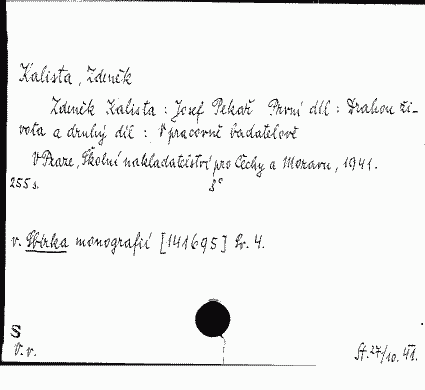 Kalista, Zdeněk
Zdeněk Kalista : Josef Pekař První díl : Drahou ži-
vota a druhý díl : V pracovně badatelově
V Praze, Školní nakladatelství pro Čechy a Moravu, 1941.
255 s. 8°
v. Sbírka monografií [141695] Sv. 4.
S
V. v. St. 27/10. 41.